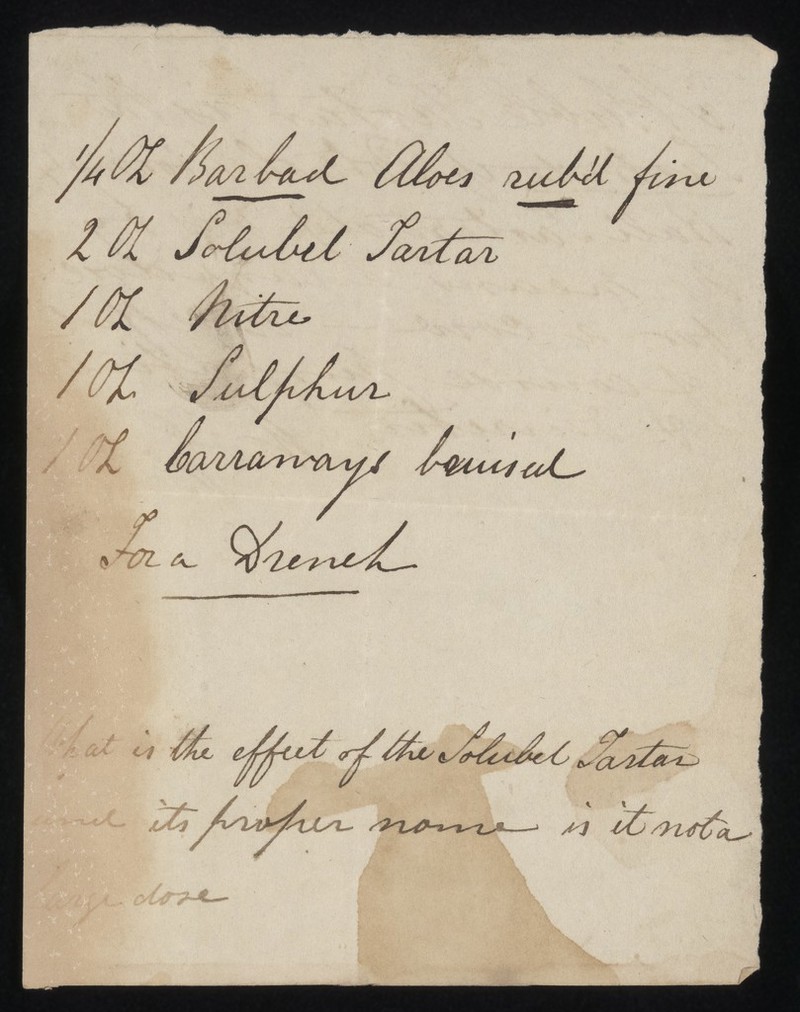 1/4 OZ Barbad Aloes rub'd fine
2 OZ Solubel Tartar
1 OZ Nitre
1 OZ Sulphur
1 OZ Carraways bruised
For a Drench
What is the effect of the Solubel Tartar
and its proper name is it not a
large dose